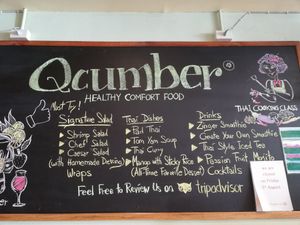 Qcumber
HEALTHY COMFORT FOOD
THAI COOKING CLASS
Must Try!
Signature Salad
Shrimp Salad
Chef Salad
Caesar Salad
(with Homemade Dressing)
Wraps
Thai Dishes
Pad Thai
Tom Yum Soup
Thai Curry
Mango with Sticky Rice
(All-Time Favorite Dessert)
Drinks
Zinger Smoothie
Create Your Own Smoothie
Thai Style Iced Tea
Passion Fruit Mojito
Cocktails
Feel Free to Review Us on tripadvisor